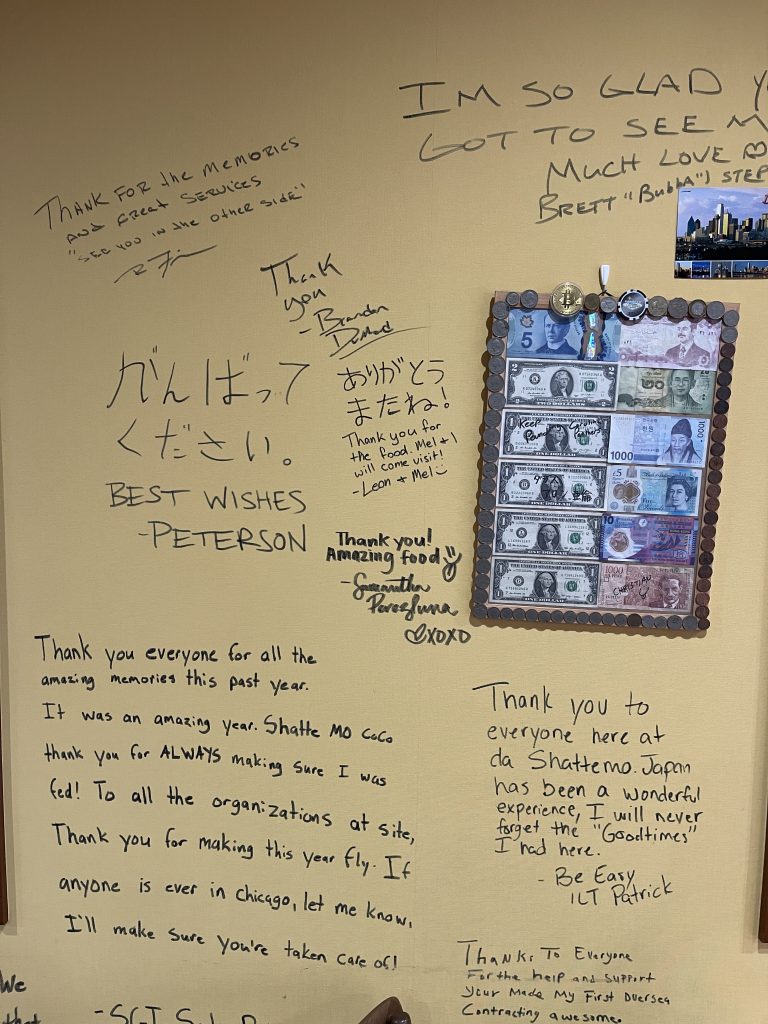 IM SO GLAD
GOT TO SEE
MUCH LOVE
BRETT "BubbA")
THANK FOR the MEMORIES
AND GREAT SERVICES
"SEE YOU IN the OTHER SIDE"
Thank
you
- Brandon
がんばって
ください。
BEST WISHES
-PETERSON
ありがとう
またね!
Thank you for
the food. Mel & I
will come visit!
- Leon & Mel
Thank you!
Amazing food
- Samantha
Perezluna
XOXO
5
2
TWO DOLLARS
20
๒๐
Keep
THE UNITED STATES OF AMERICA
ONE DOLLAR
1000
ONE DOLLAR
£5
THE UNITED STATES OF AMERICA
ONE DOLLAR
10
THE UNITED STATES OF AMERICA
ONE DOLLAR
1000
CHRISTIAN
Thank you everyone for all the
amazing memories this past year.
It was an amazing year. Shatte MO CoCo
thank you for ALWAYS making sure I was
fed! To all the organizations at site,
Thank you for making this year fly. If
anyone is ever in Chicago, let me know,
I'll make sure you're taken care of!
- SGT
Thank you to
everyone here at
da Shattemo. Japan
has been a wonderful
experience, I will never
forget the "Goodtimes"
I had here.
- Be Easy
1LT Patrick
Thanks To Everyone
For the help and support
your Made My First Oversea
Contracting awesome.
We
that